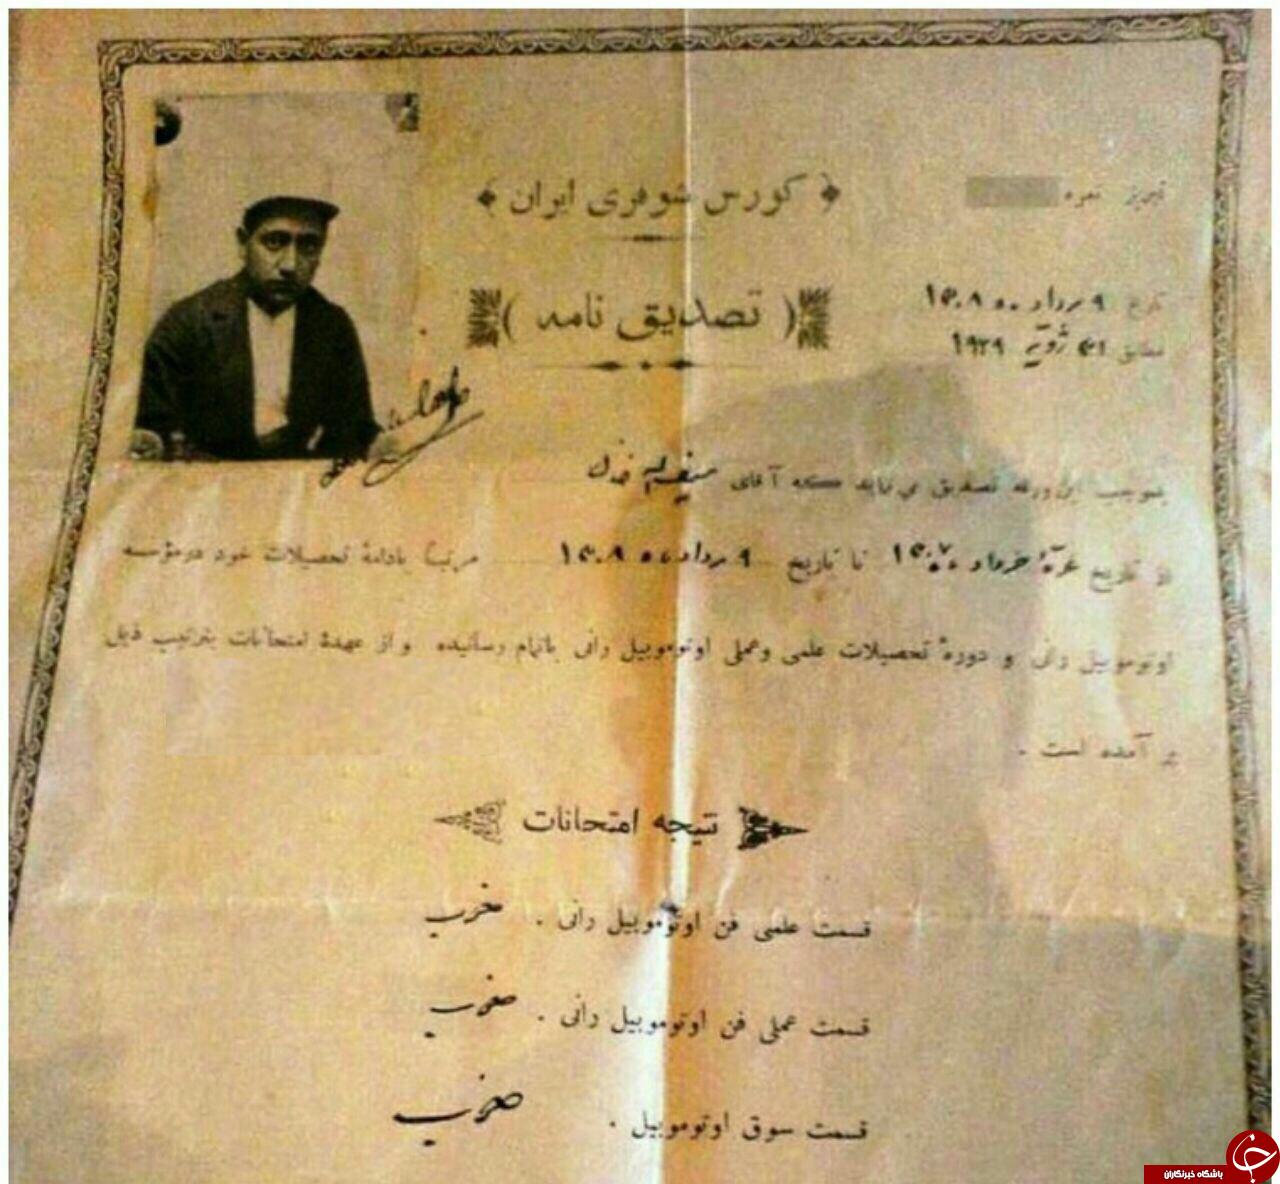 کورس شوفری ایران
تبریز نمره
تصدیق نامه
تاریخ ۹ مرداد ماه ۱۳۰۸
مطابق ۳۱ ژویه ۱۹۲۹
بموجب این ورقه تصدیق می نماید که آقای
از تاریخ غرهٔ خرداد ۱۳۰۷ تا تاریخ ۹ مرداد ماه ۱۳۰۸ مرتباً بادامهٔ تحصیلات خود در مؤسسه
اوتوموبیل رانی و دورهٔ تحصیلات علمی وعملی اوتوموبیل رانی باتمام رسانیده و از عهدهٔ امتحانات بترتیب ذیل
بر آمده است .
نتیجه امتحانات
قسمت علمی فن اوتوموبیل رانی .
قسمت عملی فن اوتوموبیل رانی .
قسمت سوق اوتوموبیل .
باشگاه خبرنگاران